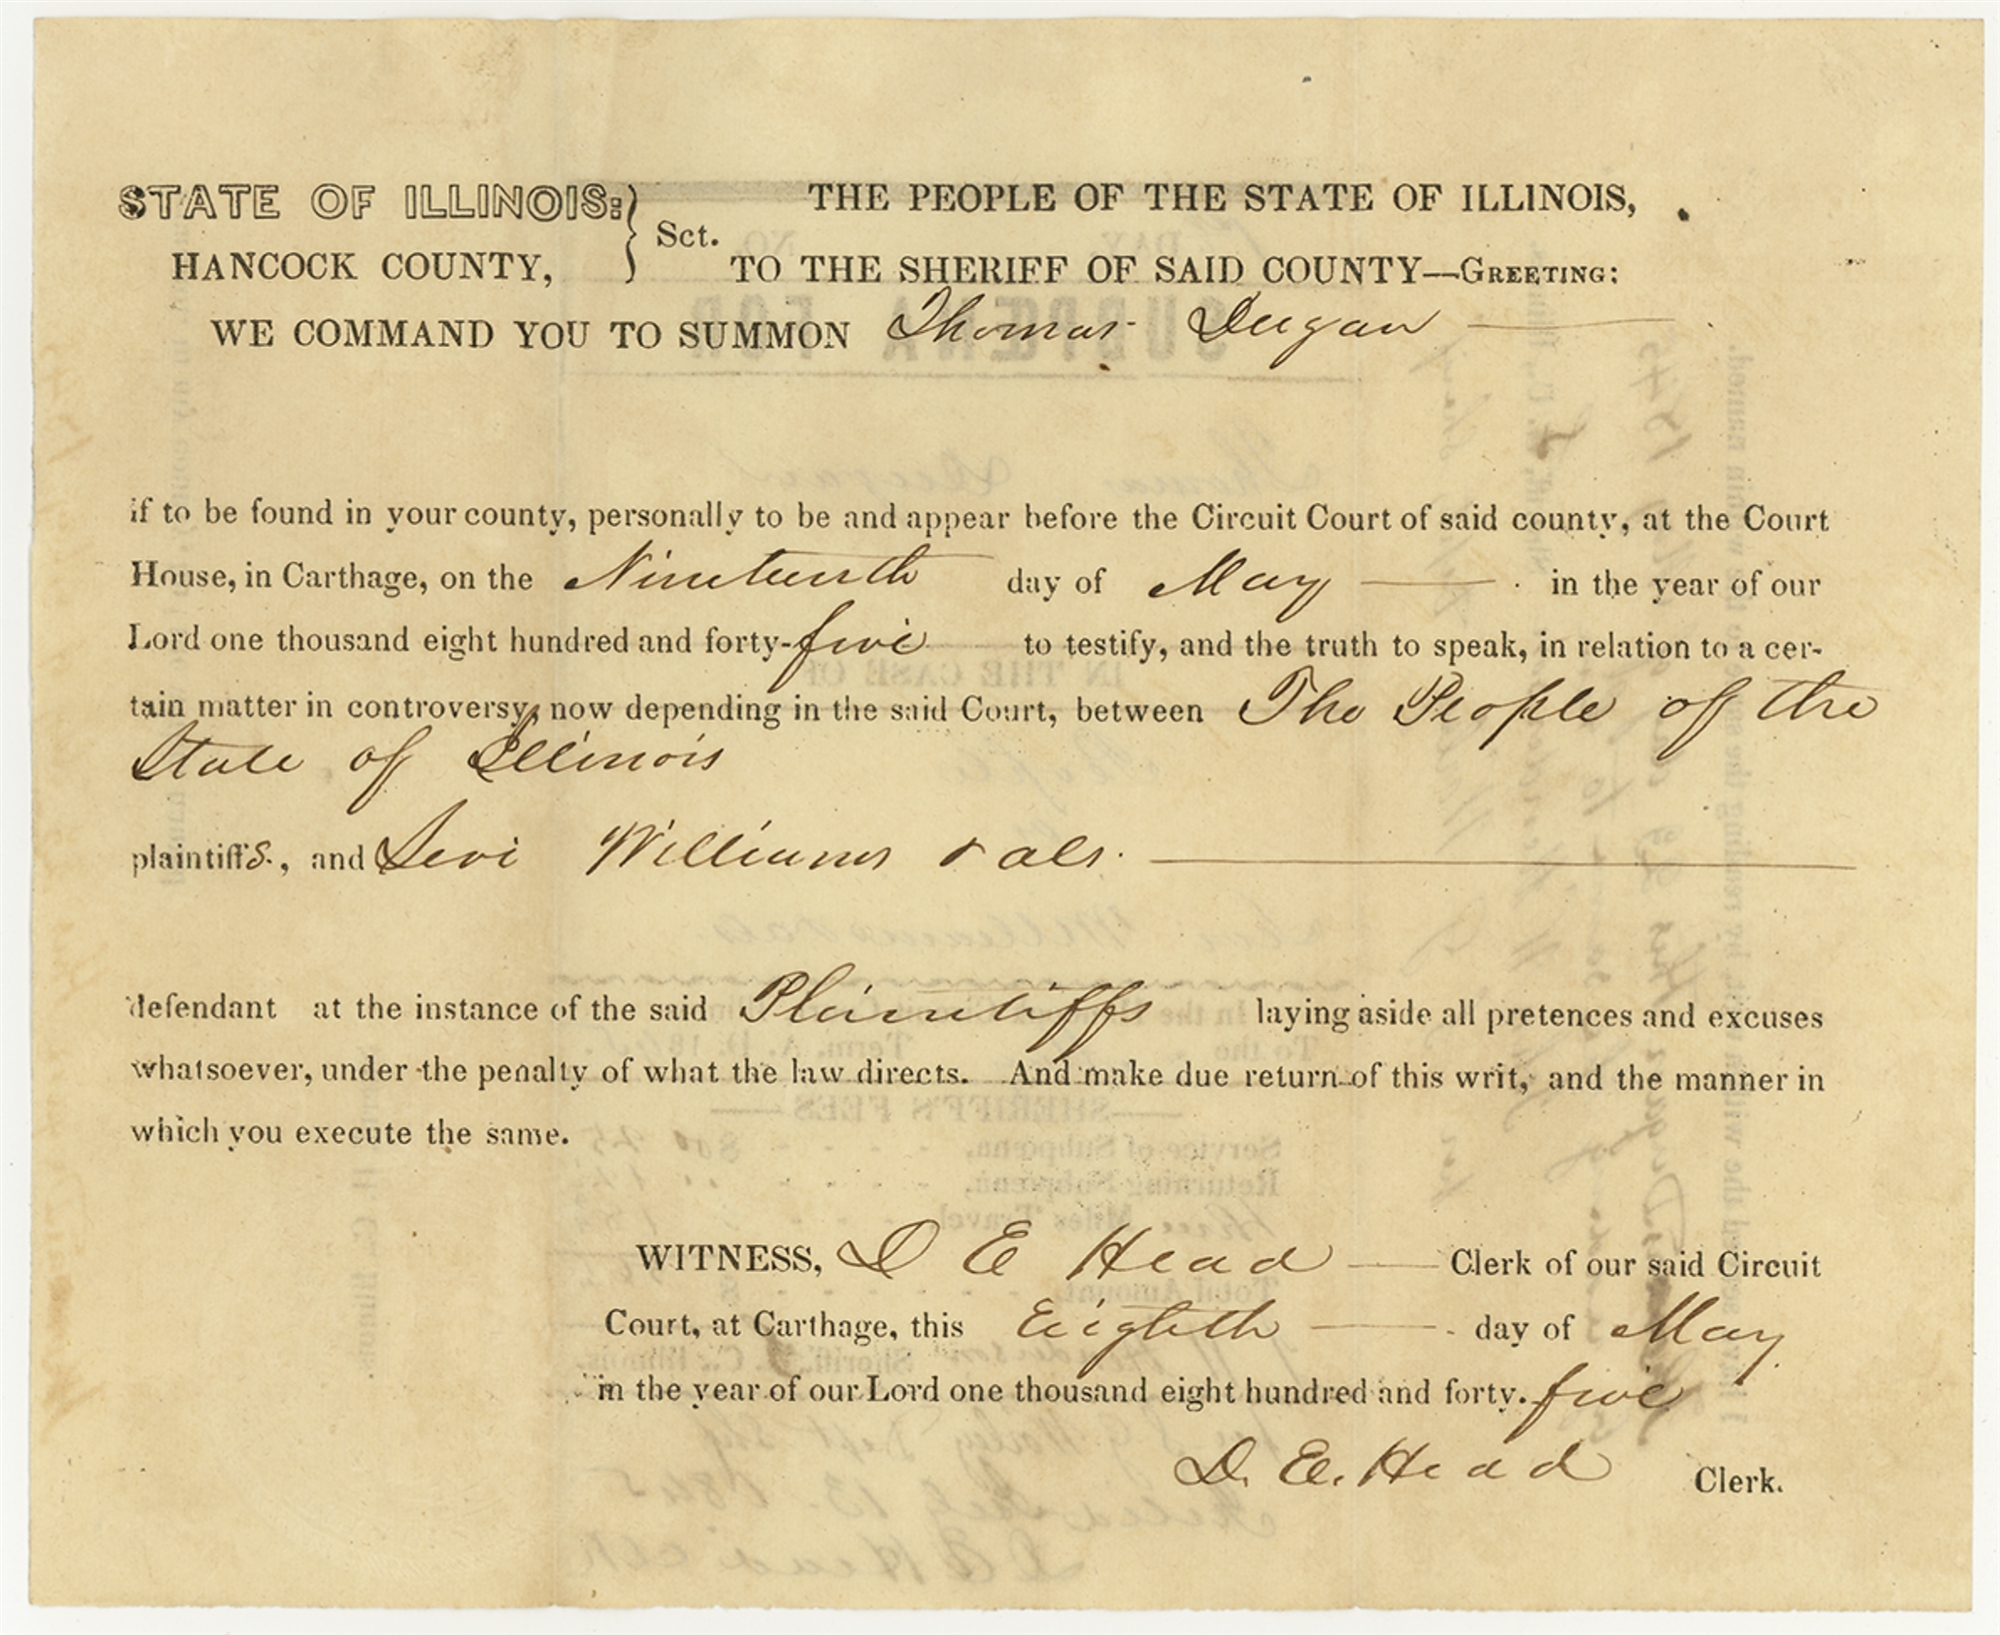 STATE OF ILLINOIS: } Sct. THE PEOPLE OF THE STATE OF ILLINOIS,
HANCOCK COUNTY, TO THE SHERIFF OF SAID COUNTY—GREETING:
WE COMMAND YOU TO SUMMON Thomas Dugan
if to be found in your county, personally to be and appear before the Circuit Court of said county, at the Court
House, in Carthage, on the Nineteenth day of May in the year of our
Lord one thousand eight hundred and forty-five to testify, and the truth to speak, in relation to a cer-
tain matter in controversy, now depending in the said Court, between The People of the
State of Illinois
plaintiffs., and Levi Williams & als.
defendant at the instance of the said Plaintiffs laying aside all pretences and excuses
whatsoever, under the penalty of what the law directs. And make due return of this writ, and the manner in
which you execute the same.
WITNESS, D E Head Clerk of our said Circuit
Court, at Carthage, this Eighth day of May
in the year of our Lord one thousand eight hundred and forty-five
D. E. Head Clerk.